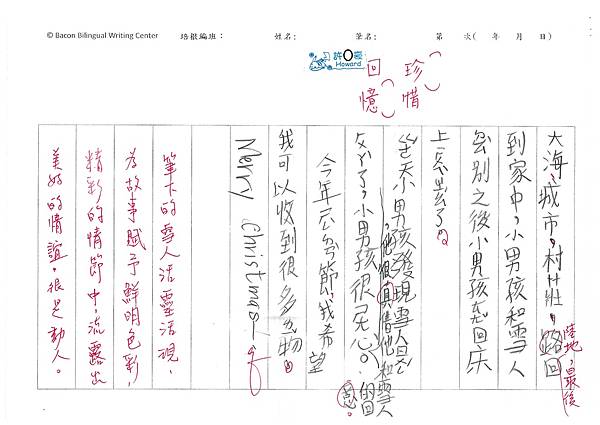 © Bacon Bilingual Writing Center 培根編班： 姓名： 筆名： 第 次（ 年 月 日）
許O豪
Howard
珍惜
回憶
大海、城市、村莊，路回
陸地，最後
到家中，小男孩和雪人
告別之後小男孩走回床
上
小男孩發現雪人
他很
他和雪人
的回
了，小男孩很
今年 節，我希望
我可以收到很多 物。
Merry Christmas
筆下的雪人活靈活現，
為故事賦予鮮明色彩，
精彩的情節中，流露出
美好的情誼，很是動人。